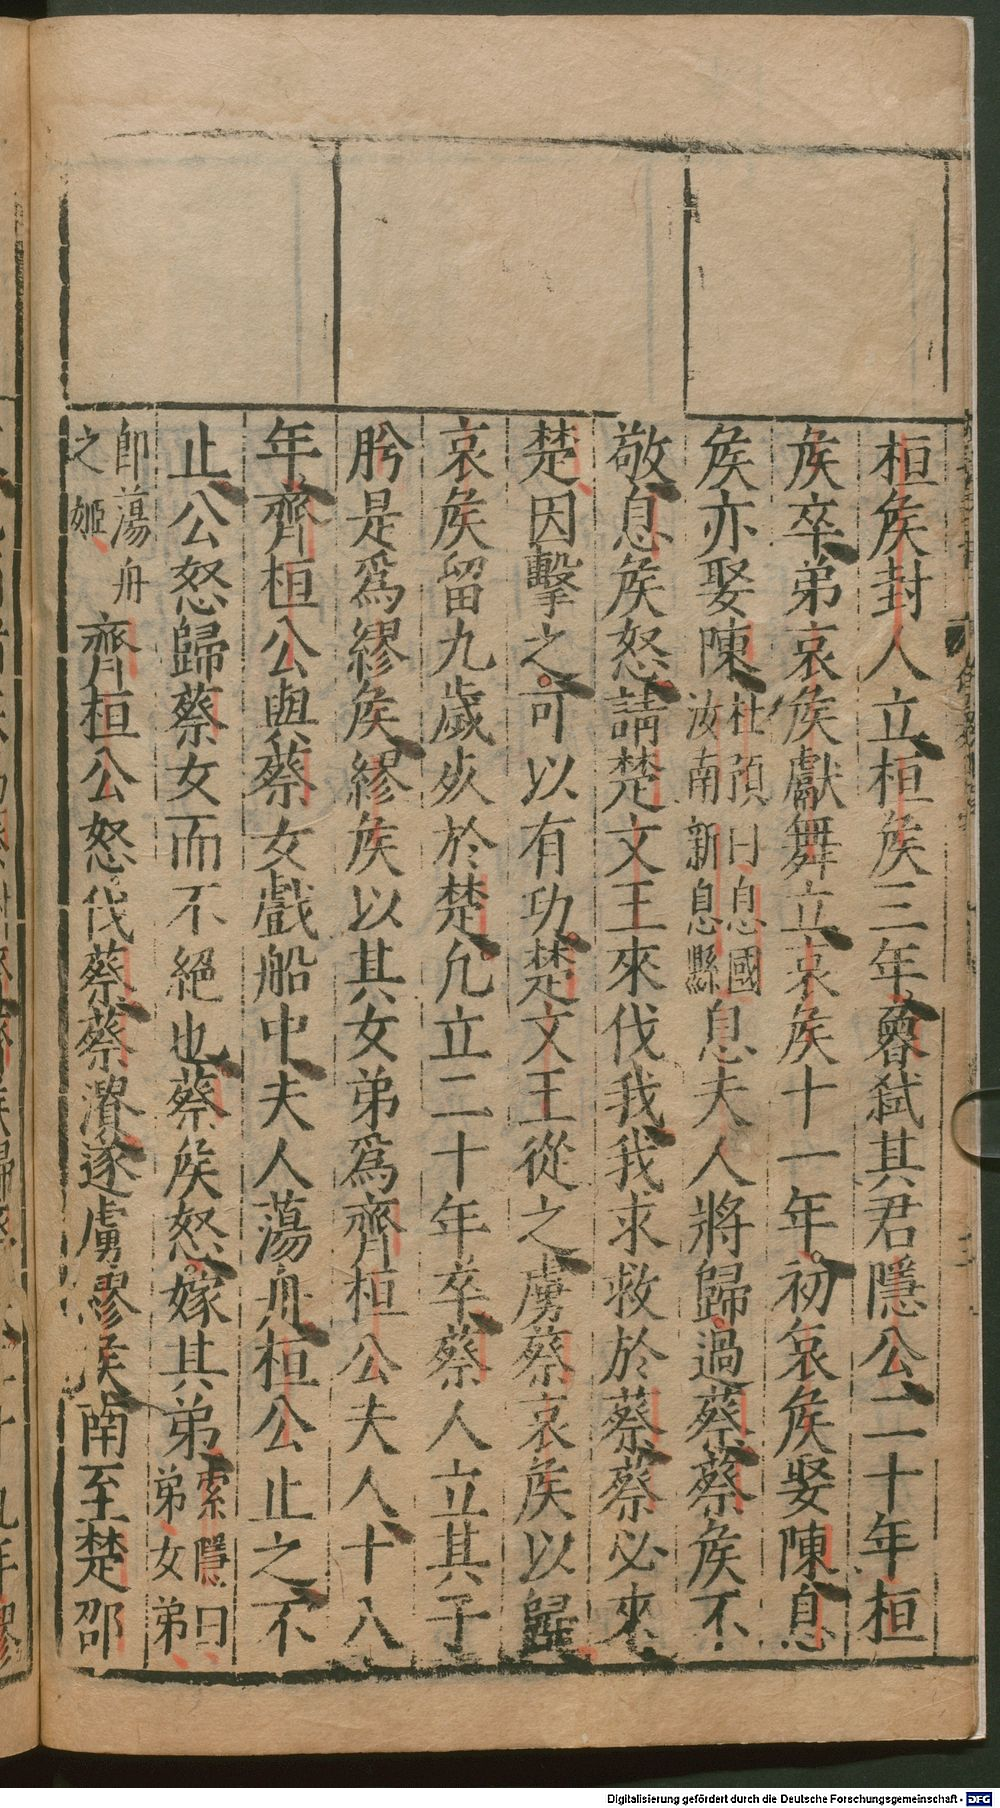 桓矦封人立桓矦三年魯弑其君隱公二十年桓
矦卒弟哀矦獻舞立哀矦十一年初哀矦娶陳息
矦亦娶陳杜預曰息國汝南新息縣息夫人將歸過蔡蔡矦不
敬息矦怒請楚文王來伐我我求救於蔡蔡必來
楚因擊之可以有功楚文王從之虜蔡哀矦以歸
哀矦留九歲死於楚凡立二十年卒蔡人立其子
肹是爲繆矦繆矦以其女弟爲齊桓公夫人十八
年齊桓公與蔡女戲船中夫人蕩舟桓公止之不
止公怒歸蔡女而不絕也蔡矦怒嫁其弟索隱曰弟女弟
卽蕩舟之姬齊桓公怒伐蔡蔡潰遂虜繆矦南至楚邵
Digitalisierung gefördert durch die Deutsche Forschungsgemeinschaft - DFG